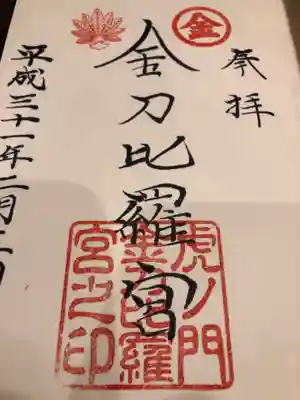 奉拝
金
金刀比羅宮
虎ノ門
金刀比羅
宮之印
平成三十一年二月